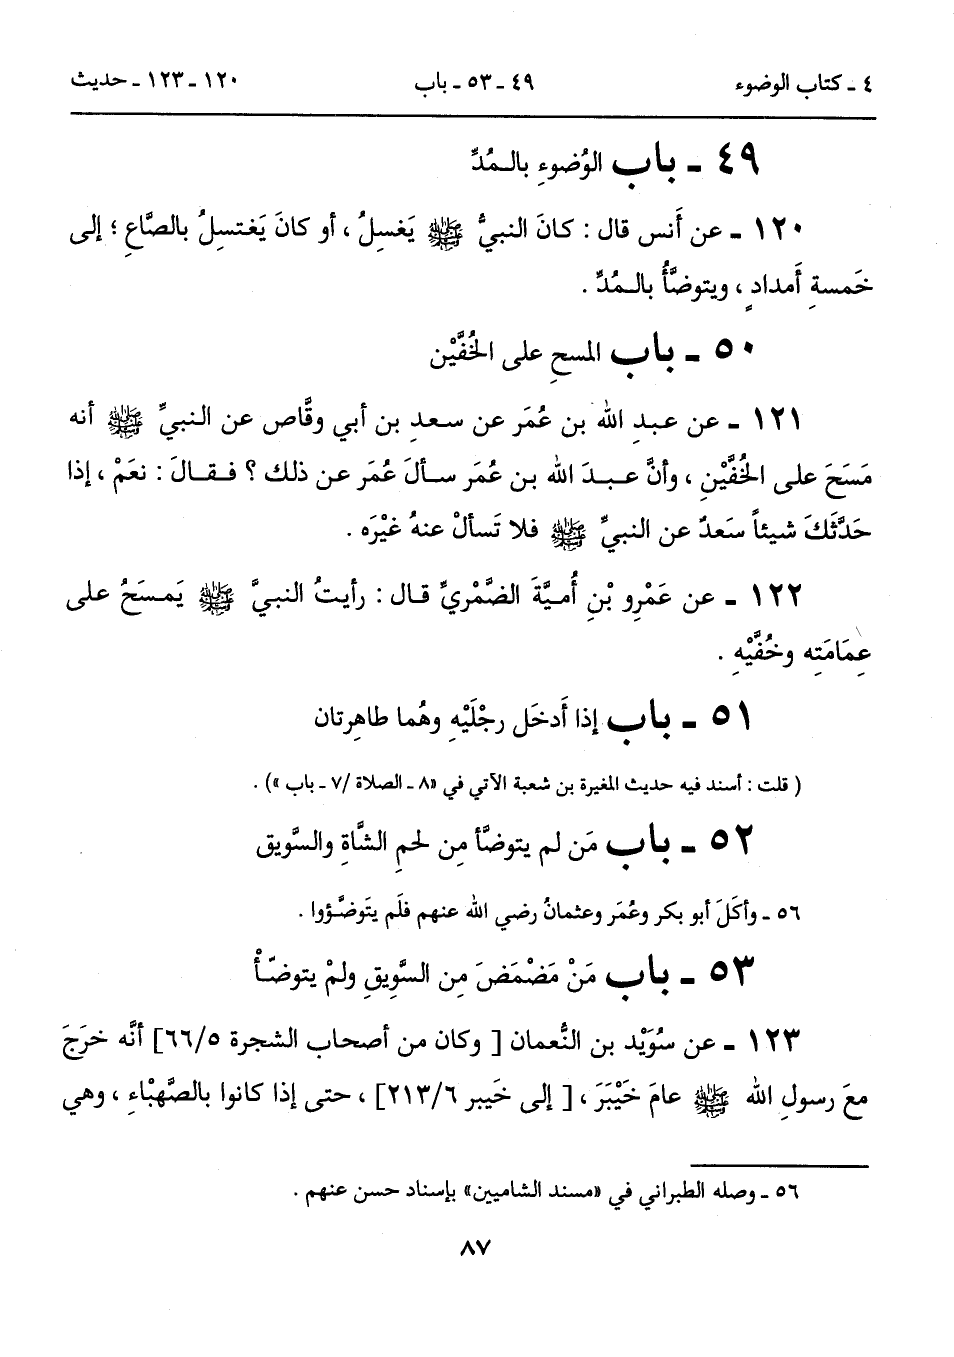 ٤ ـ كتاب الوضوء ٤٩ ـ ٥٣ ـ باب ١٢٠ ـ ١٢٣ ـ حديث
٤٩ ـ باب الوُضوءِ بالـمُدِّ
١٢٠ ـ عن أَنس قال : كانَ النبيُّ ﷺ يَغسِلُ ، أو كانَ يَغتسِلُ بالصَّاعِ ؛ إلى
خَمسةِ أَمدادٍ ، ويتوضَّأُ بالـمُدِّ .
٥٠ ـ باب المسحِ على الخُفَّيْن
١٢١ ـ عن عبدِ الله بن عُمَر عن سعدِ بن أبي وقَّاص عن النبيِّ ﷺ أنه
مَسَحَ على الخُفَّيْنِ ، وأنَّ عبدَ الله بن عُمَر سألَ عُمَر عن ذلك ؟ فقالَ : نعَمْ ، إذا
حَدَّثَكَ شيئاً سَعدٌ عن النبيِّ ﷺ فلا تَسألْ عنهُ غيْرَه .
١٢٢ ـ عن عَمْرِو بْنِ أُميَّةَ الضَّمْريِّ قال : رأيتُ النبيَّ ﷺ يَمسَحُ على
عِمَامَتِه وخُفَّيْهِ .
٥١ ـ باب إذا أَدخَل رِجْلَيْهِ وهُما طاهِرتان
( قلت : أسند فيه حديث المغيرة بن شعبة الآتي في «٨ ـ الصلاة /٧ ـ باب ») .
٥٢ ـ باب مَن لم يتوضَّأ مِن لحمِ الشَّاةِ والسَّويق
٥٦ ـ وأكَلَ أبو بكر وعُمَر وعثمانُ رضي الله عنهم فلَم يتَوضَّؤوا .
٥٣ ـ باب مَنْ مَضْمَضَ مِن السَّوِيقِ ولمْ يتوضّأْ
١٢٣ ـ عن سُوَيْد بن النُّعمان [ وكان من أصحاب الشجرة ٦٦/٥] أنَّه خرَجَ
معَ رسولِ الله ﷺ عامَ خَيْبَرَ ، [ إلى خَيبر ٢١٣/٦] ، حتى إذا كانوا بالصَّهْباءِ ، وهي
٥٦ ـ وصله الطبراني في «مسند الشاميين» بإسناد حسن عنهم .
٨٧